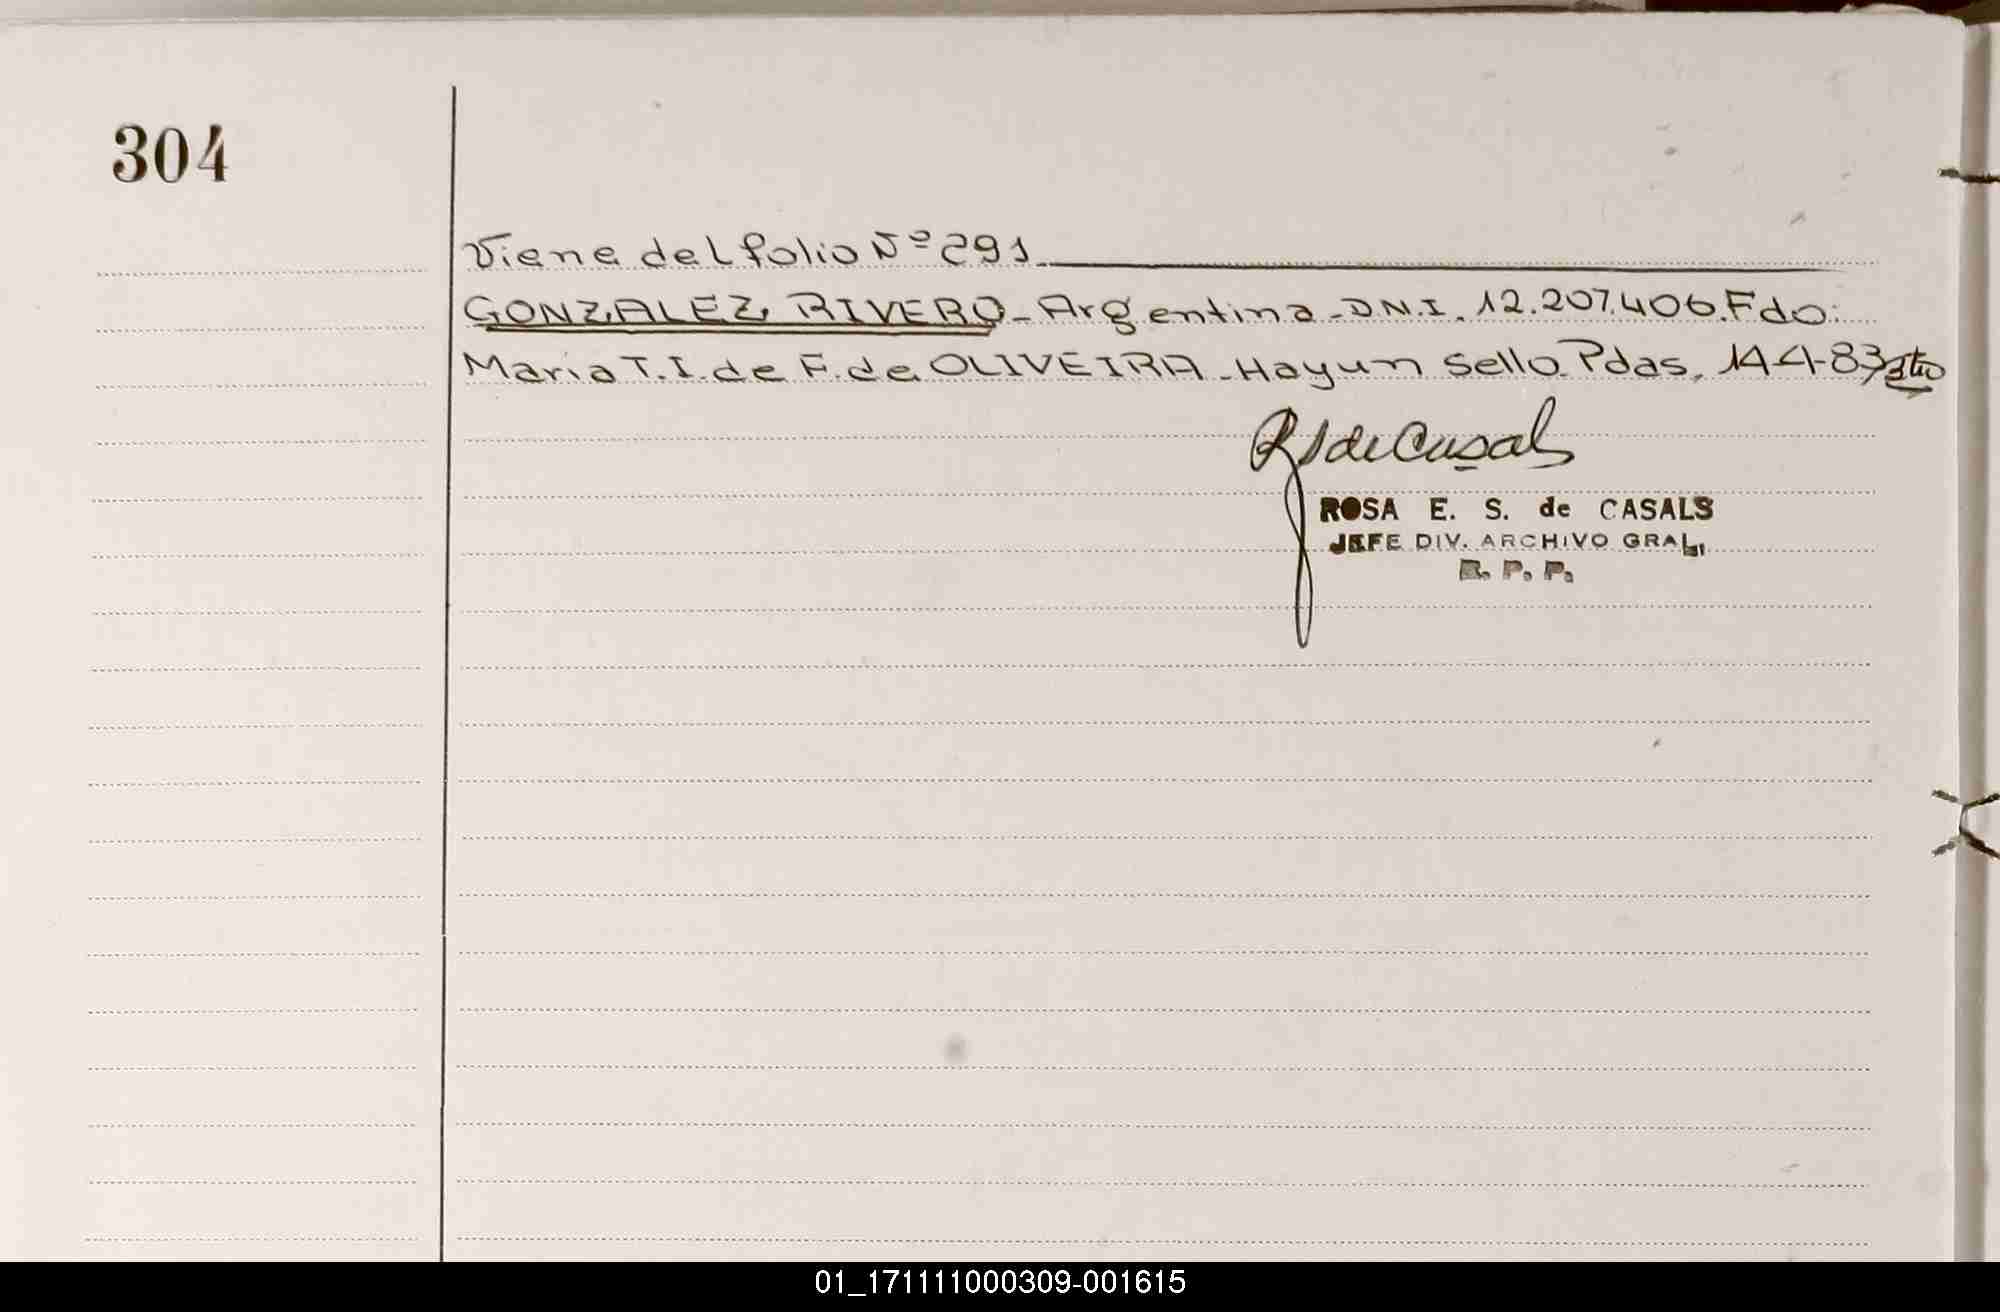 304
Viene del folio Nº 291
GONZALEZ RIVERO - Argentina - D.N.I. 12.207.406. Fdo:
Maria T. I. de F. de OLIVEIRA - Hay un Sello. Pdas, 14-4-83
R S de Casals
ROSA E. S. de CASALS
JEFE DIV. ARCHIVO GRAL.
R. P. P.
01_171111000309-001615